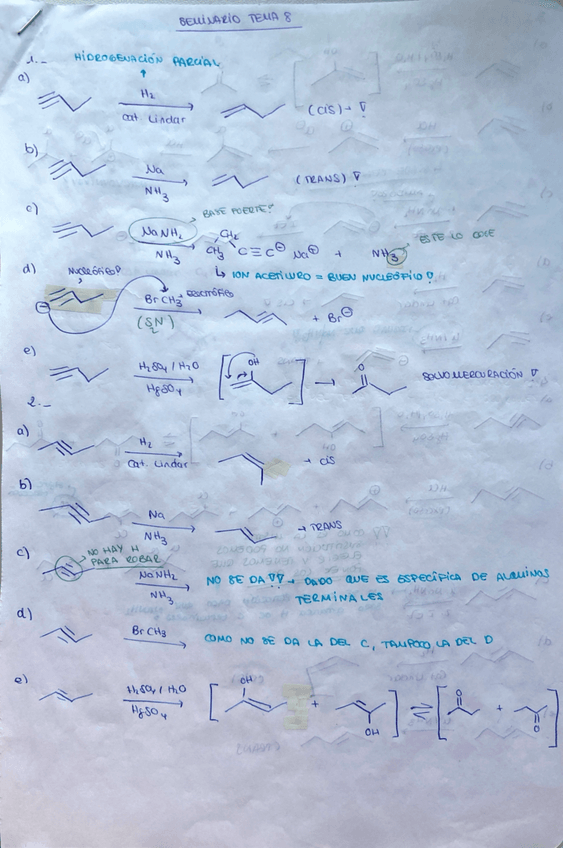 SEMINARIO TEMA 8
1.- HIDROGENACIÓN PARCIAL
a) H₂ Cat. Lindar (CIS)→ ∇
b) Na NH₃ (TRANS) ∇
c) NaNH₂ NH₃ BASE FUERTE? CH₂ CH₃ C≡C⊖ Na⊕ + NH₃ ESTE LO COGE
↳ ION ACETILURO = BUEN NUCLEÓFILO!
d) NUCLEÓFILO? ⊖ BrCH₃ ELECTRÓFILO (SN₂) + Br⊖
e) H₂SO₄ / H₂O HgSO₄ [ OH ] → O
2.-
a) H₂ Cat. Lindar → CIS
b) Na NH₃ → TRANS
c) NO HAY H PARA ROBAR NaNH₂ NH₃ NO SE DA ∇∇ → DADO QUE ES ESPECÍFICA DE ALQUINOS
TERMINALES
d) BrCH₃ COMO NO SE DA LA DEL C, TAMPOCO LA DEL D
e) H₂SO₄ / H₂O HgSO₄ [ OH + OH ] ⇌ [ O + O ]